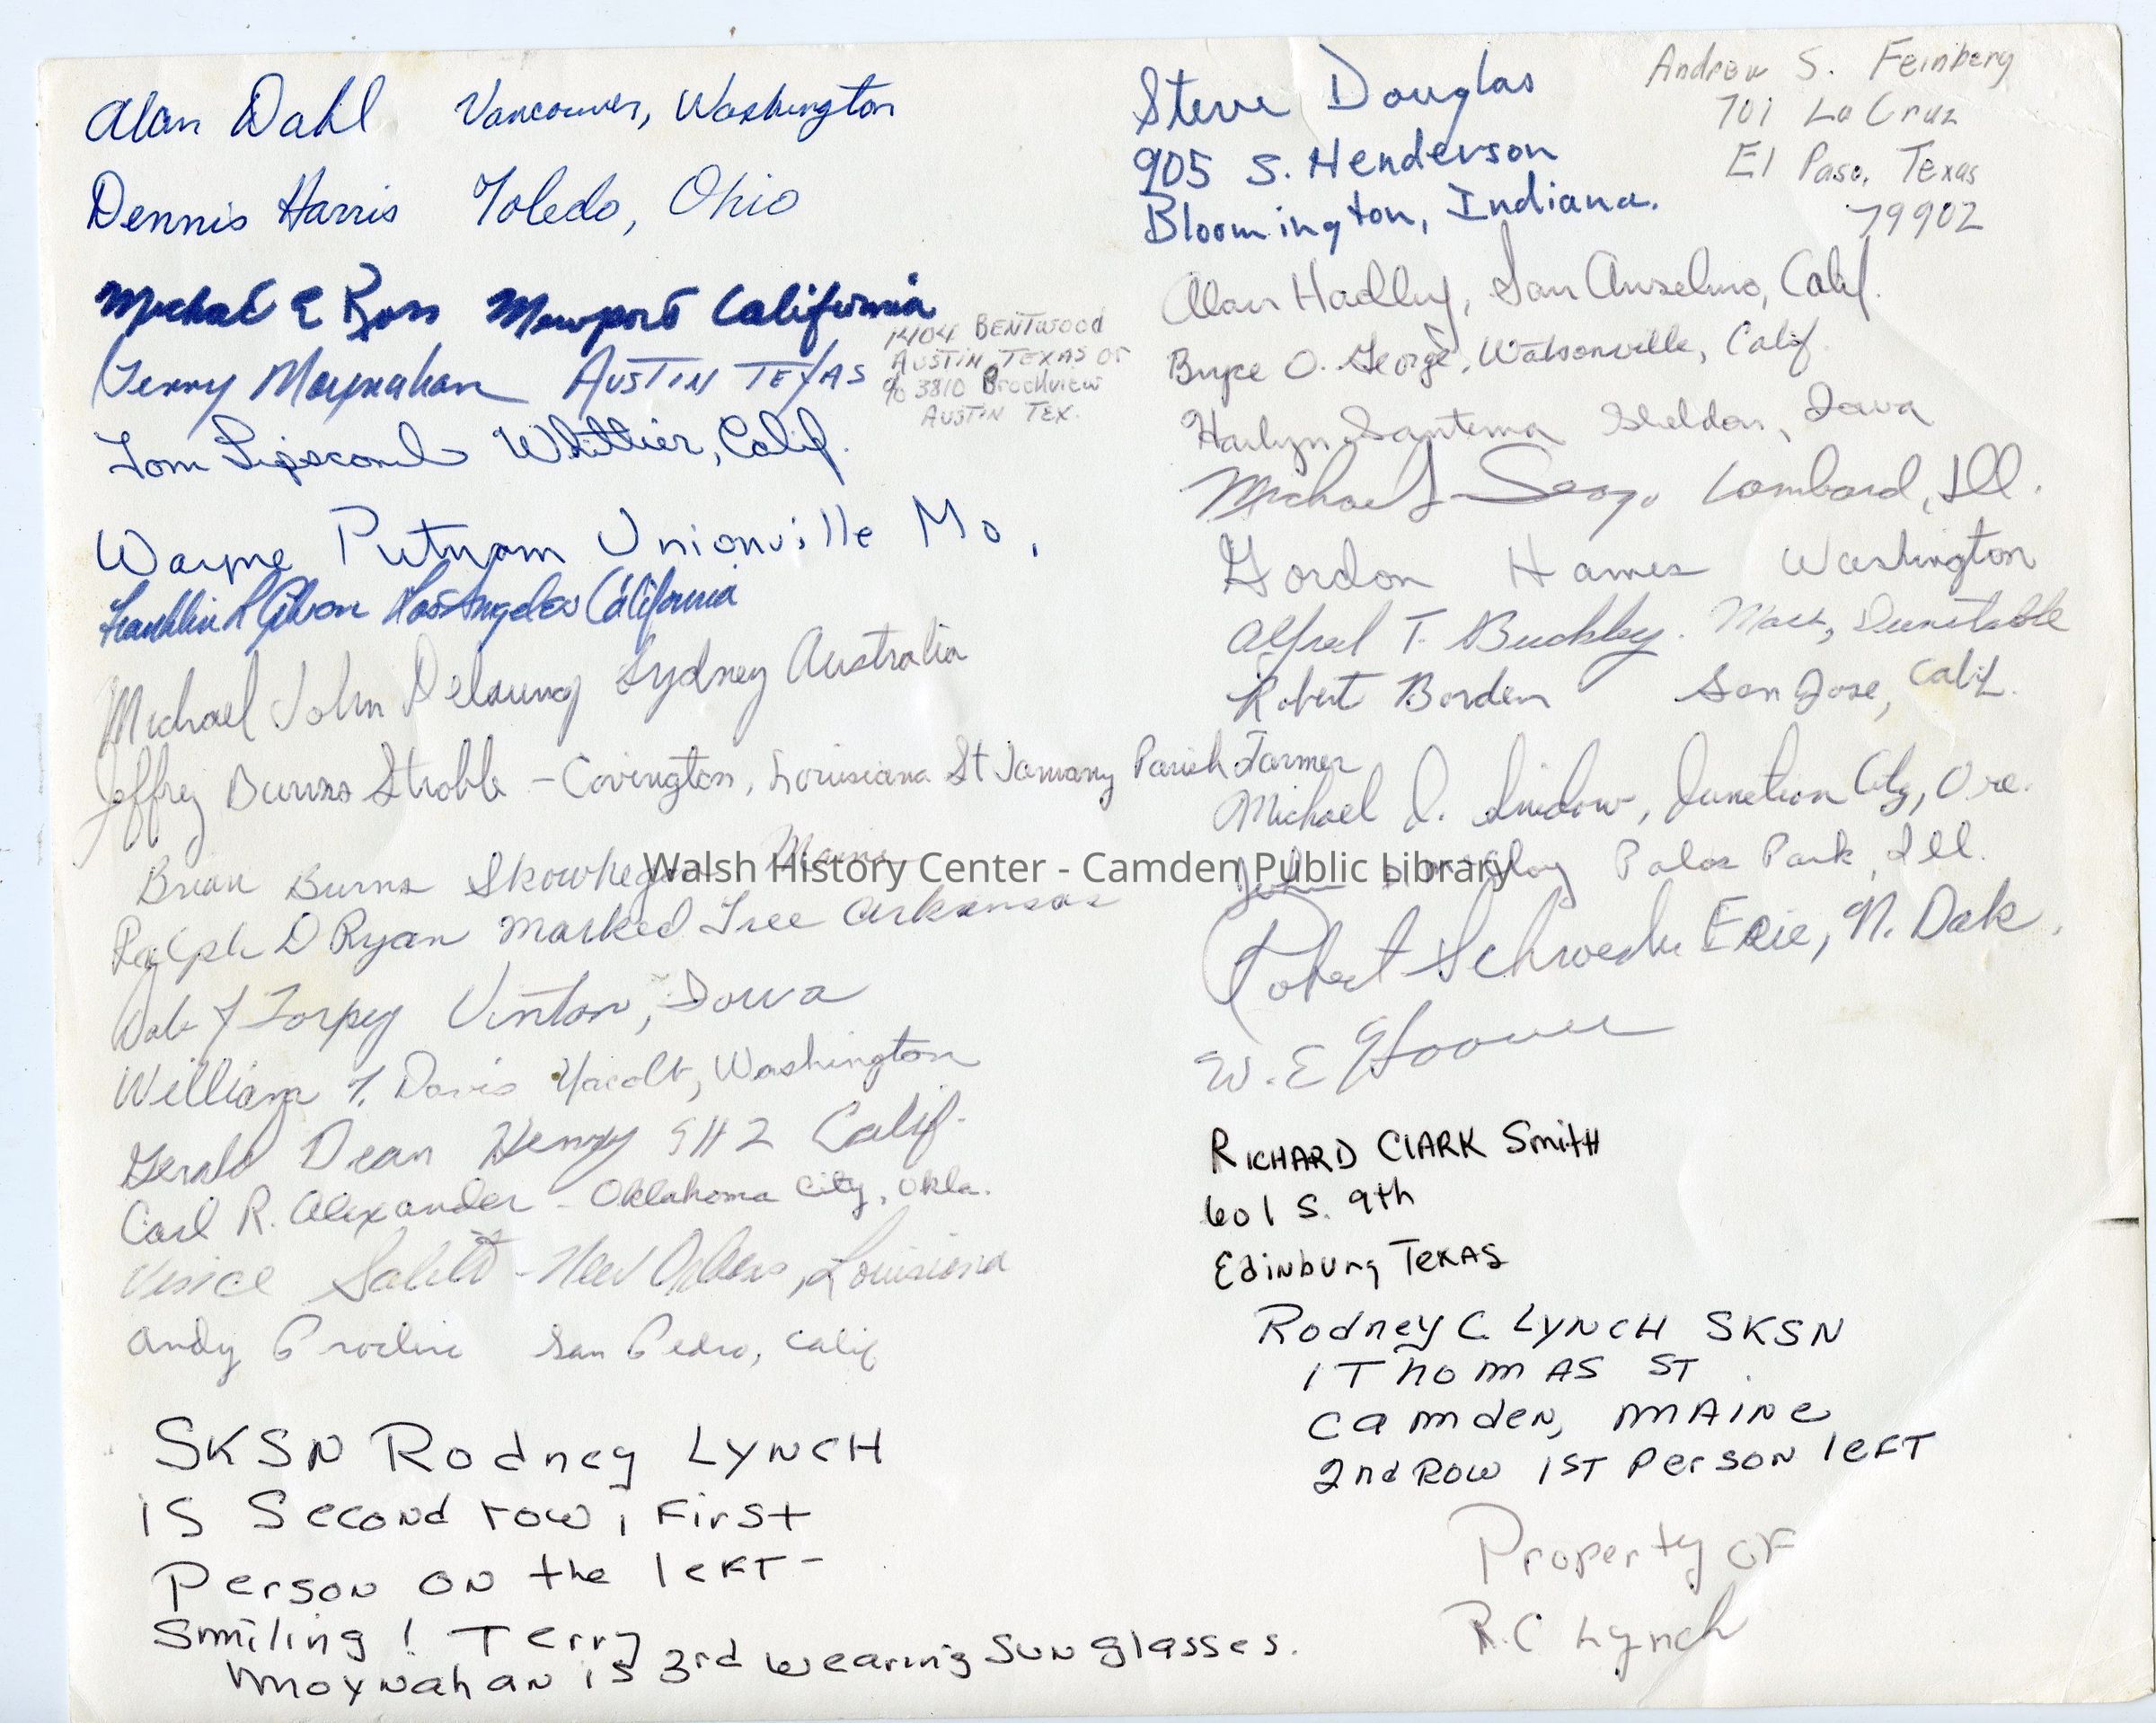 Alan Dahl Vancouver, Washington
Dennis Harris Toledo, Ohio
Michael E Ross Newport California
Terry Moynahan AUSTIN TEXAS
1404 BENTWOOD
AUSTIN, TEXAS or
% 3810 Brookview
AUSTIN TEX.
Tom Lipscomb Whittier, Calif.
Wayne Putnam Unionville Mo,
Franklin R Gibson Los Angeles California
Michael John Sydney Australia
Jeffrey Burns Strobble - Covington, Louisiana St Tammany Parish Farmer
Brian Burns Skowhegan Maine
Ralph D Ryan Marked Tree Arkansas
Dale J Torpey Vinton, Iowa
William T. Davis Yacolt, Washington
Gerald Dean Henry Calif.
Carl R. Alexander - Oklahoma City, Okla.
Vince - New Orleans, Louisiana
Andy San Pedro, Calif
SKSN Rodney LYNCH
is Second row, First
Person on the left -
Smiling! Terry
Moynahan is 3rd wearing Sunglasses.
Steve Douglas
905 S. Henderson
Bloomington, Indiana.
Andrew S. Feinberg
701 La Cruz
El Paso, Texas
79902
Alan Hadley, San Anselmo, Calif.
Bryce O. George, Watsonville, Calif
Harlyn Santema Sheldon, Iowa
Michael Lombard, Ill.
Gordon Hames Washington
Alfred T. Buckley. Mass, Dunstable
Robert Borden San Jose, Calif.
Michael D. Lindow, Junction City, Ore.
John Palos Park, Ill.
Robert Schroeder Erie, N. Dak.
W. E Hoover
RICHARD CLARK Smith
601 S. 9th
Edinburg TEXAS
Rodney C. LYNCH SKSN
1 Thomas ST
Camden, Maine
2nd Row 1ST Person left
Property of
R.C Lynch
Walsh History Center - Camden Public Library